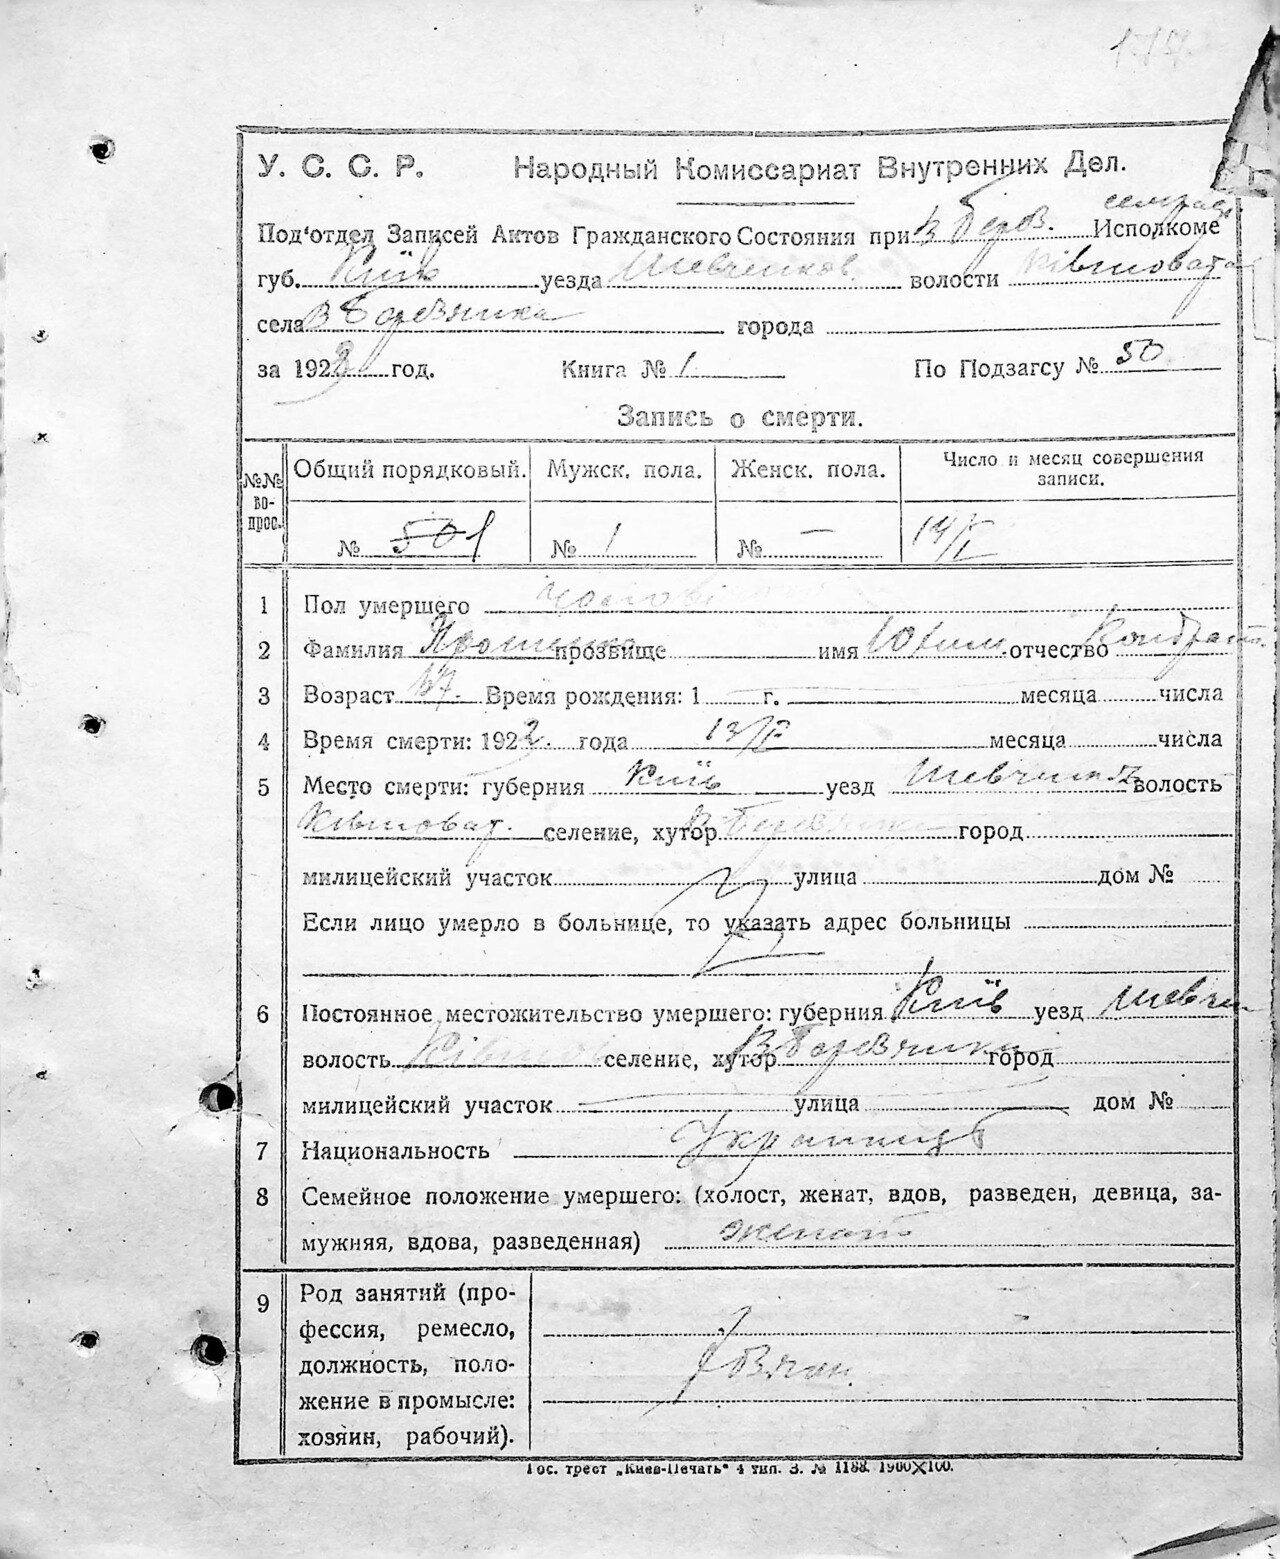 У. С. С. Р. Народный Комиссариат Внутренних Дел.
Под'отдел Записей Актов Гражданского Состояния при В Берв. Исполкоме
губ. Київ уезда Шевченков. волости Ківшовата
села В Березянка города
за 1923 год. Книга № 1 По Подзагсу № 50
Запись о смерти.
№№ вопрос. Общий порядковый. Мужск. пола. Женск. пола. Число и месяц совершения записи.
№ 1 № 1 № — 14/I
1 Пол умершего
2 Фамилия прозвище имя Юхим отчество Кондрат.
3 Возраст 57. Время рождения: 1 г. месяца числа
4 Время смерти: 1923 года 13/I месяца числа
5 Место смерти: губерния Київ уезд волость
Ківшоват. селение, хутор город
милицейский участок улица дом №
Если лицо умерло в больнице, то указать адрес больницы
6 Постоянное местожительство умершего: губерния Київ уезд Шевчен
волость Ківшов селение, хутор город
милицейский участок улица дом №
7 Национальность
8 Семейное положение умершего: (холост, женат, вдов, разведен, девица, за-
мужняя, вдова, разведенная) женат
9 Род занятий (про-
фессия, ремесло,
должность, поло-
жение в промысле:
хозяин, рабочий).
Гос. трест „Киев-Печать“ 4 тип. З. № 1188. 1900×100.